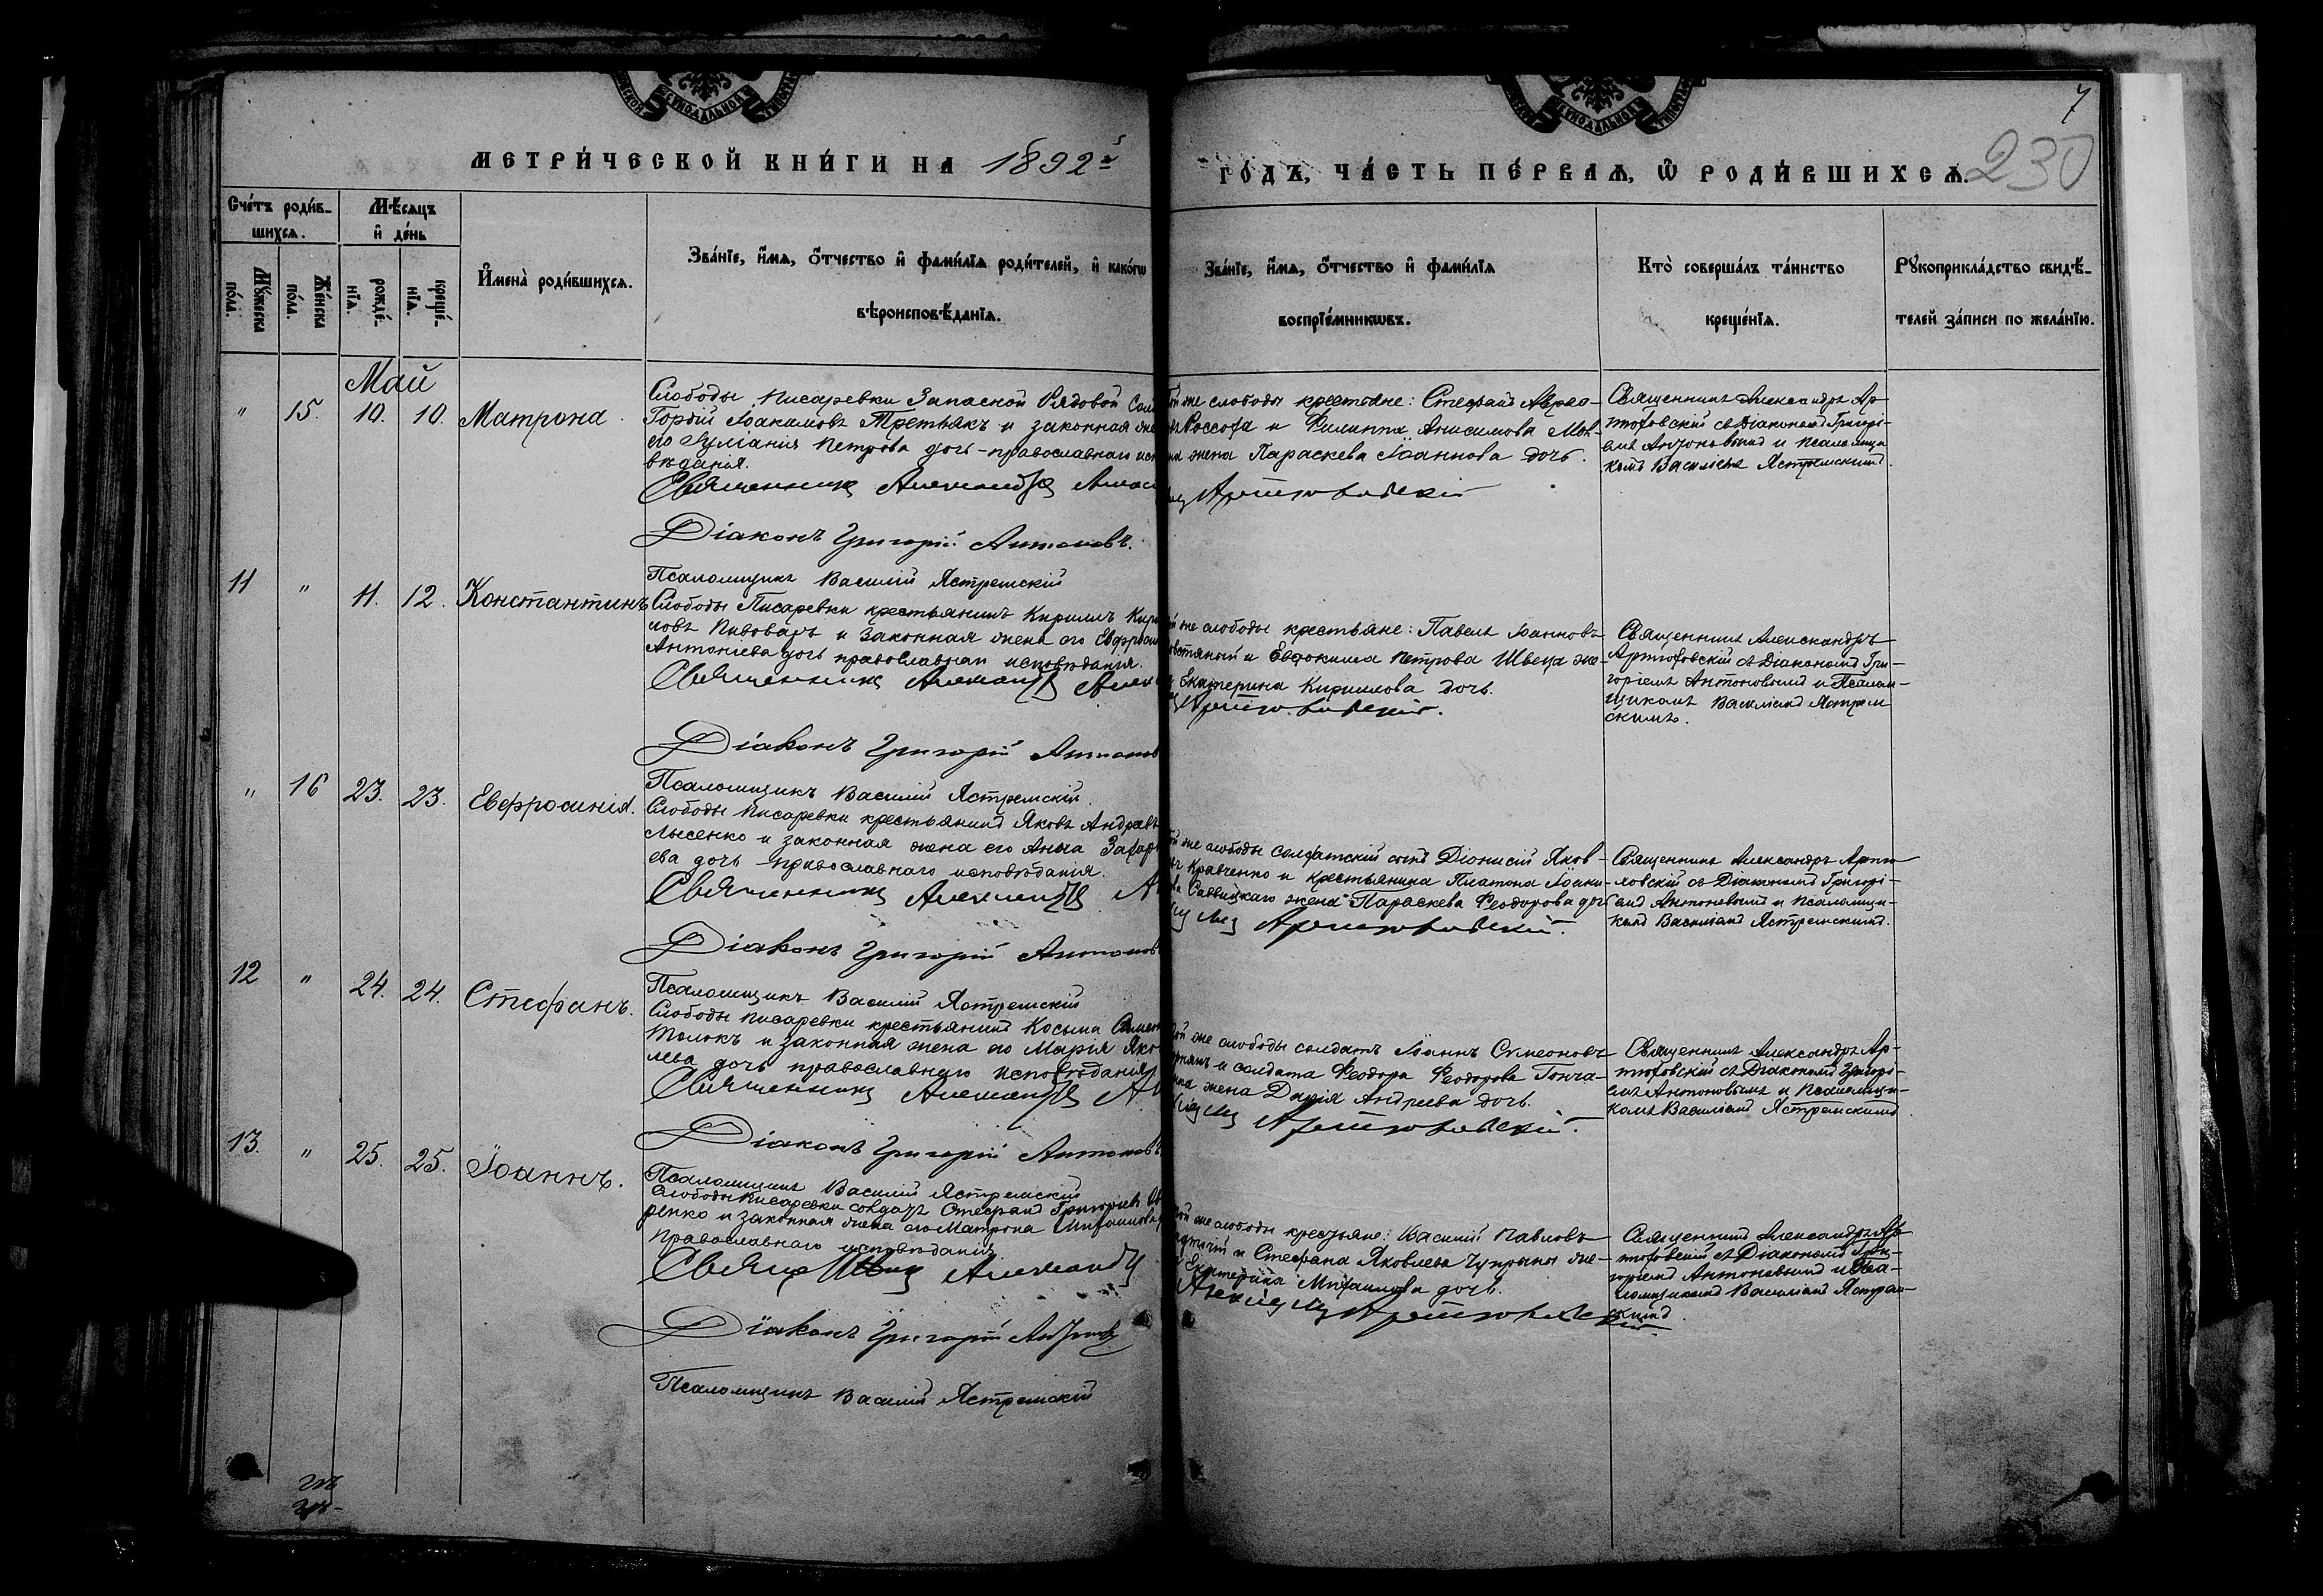 7
230
МЕТРИ́ЧЕСКОЙ КНИ́ГИ НА 1892й
ГО́ДЪ, ЧА́СТЬ ПЕ́РВАѦ, Ѡ҆ РОДИ́ВШИХСѦ.
Сче́тъ роди́в-
шихсѧ.
Мѣ́сѧцъ
и҆ де́нь
Мꙋ́жеска
по́ла.
Же́нска
по́ла.
рожде́-
нїѧ.
креще́-
нїѧ.
И҆мена̀ роди́вшихсѧ.
Зва́нїе, и҆́мѧ, ѻ҆́тчество и҆ фами́лїѧ роди́телей, и҆ како́гѡ
вѣроисповѣ́данїѧ.
Зва́нїе, и҆́мѧ, ѻ҆́тчество и҆ фами́лїѧ
воспрїе́мникѡвъ.
Кто̀ соверша́лъ та́инство
креще́нїѧ.
Рꙋкоприкла́дство свидѣ́-
телей за́писи по жела́нїю.
Май
" 15. 10. 10. Матрона.
Слободы Писаревки Запасной Рядовой
Гордій Іоакимовъ Третьякъ и законная
его Іуліанія Петрова дочь - православнаго
вѣданія.
Священникъ Александръ
Діаконъ Григорій Антоновъ.
Псаломщикъ Василій Ястремскій
же слободы крестьяне: Стефанъ
и Филиппа Анисимова
жена Параскева Іоаннова дочь.
Артюховскій
Священникъ Александръ Ар-
тюховскій съ Діакономъ Григорі-
емъ Антоновымъ и псаломщи-
комъ Василіемъ Ястремскимъ.
11 " 11. 12. Константинъ
Слободы Писаревки крестьянинъ Кириллъ
ловъ Пивоваръ и законная жена его
Антоніева дочь православнаго исповѣданія.
Священникъ Александръ
Діаконъ Григорій
Псаломщикъ Василій Ястремскій.
же слободы крестьяне: Павелъ Іоанновъ
и Евдокима Петрова Швеца же-
Екатерина Кириллова дочь.
Артюховскій.
Священникъ Александръ
Артюховскій съ Діакономъ Гри-
горіемъ Антоновымъ и Псалом-
щикомъ Василіемъ Ястрем
скимъ.
" 16 23. 23. Евфросинія.
Слободы Писаревки крестьянинъ Яковъ Андреевъ
Лысенко и законная жена его Анна
ева дочь православнаго исповѣданія.
Священникъ Александръ
Діаконъ Григорій
Псаломщикъ Василій Ястремскій
же слободы солдатскій сынъ Діонисій Яков-
Кравченко и крестьянина Платона
жена Параскева Феодорова дочь
Артюховскій.
Священникъ Александръ Артю-
ховскій съ Діакономъ Григорі-
емъ Антоновымъ и псаломщи-
комъ Василіемъ Ястремскимъ.
12 " 24. 24. Стефанъ.
Слободы Писаревки крестьянинъ Косьма
Толокъ и законная жена его Марія
лева дочь православнаго исповѣданія
Священникъ Александръ
Діаконъ Григорій Антоновъ
Псаломщикъ Василій Ястремскій
же слободы солдатъ Іоаннъ Симеоновъ
и солдата Феодора Феодорова Гонча-
жена Дарія Андреева дочь.
Артюховскій.
Священникъ Александръ Ар-
тюховскій съ Діакономъ Григорі-
емъ Антоновымъ и псаломщи-
комъ Василіемъ Ястремскимъ.
13. " 25. 25. Іоаннъ.
Слободы Писаревки солдатъ Стефанъ Григорьевъ
ренко и законная жена его Матрона
православнаго исповѣданія.
Священникъ Александръ
Діаконъ Григорій
Псаломщикъ Василій Ястремскій
же слободы крестьяне: Василій Павловъ
и Стефана Яковлева Чупрыны же-
Екатерина Михаилова дочь.
Артюховскій.
Священникъ Александръ Ар-
тюховскій съ Діакономъ Гри-
горіемъ Антоновымъ и Пса-
ломщикомъ Василіемъ Ястрем-
скимъ.